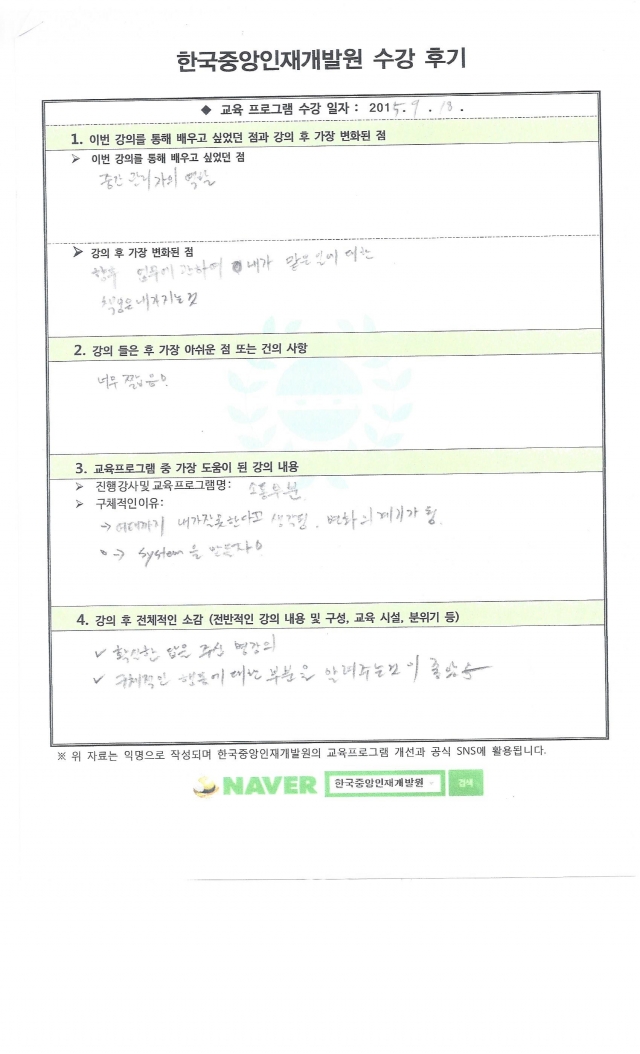 한국중앙인재개발원 수강 후기
◆ 교육 프로그램 수강 일자 : 2015. 9 . 18 .
1. 이번 강의를 통해 배우고 싶었던 점과 강의 후 가장 변화된 점
➢ 이번 강의를 통해 배우고 싶었던 점
중간 관리자의 역할
➢ 강의 후 가장 변화된 점
향후 업무에 관하여 내가 맡은 일에 대한
2. 강의 들은 후 가장 아쉬운 점 또는 건의 사항
너무 짧음.
3. 교육프로그램 중 가장 도움이 된 강의 내용
➢ 진행강사및교육프로그램명: 소통부분
➢ 구체적인이유:
→ 여태까지 내가잘못한다고 생각됨. 변화의 계기가 됨.
→ system을 만들자!
4. 강의 후 전체적인 소감 (전반적인 강의 내용 및 구성, 교육 시설, 분위기 등)
✓ 확실한 답을 주신 명강의
✓ 구체적인 행동에 대한 부분을 알려주는것이 좋았음
※ 위 자료는 익명으로 작성되며 한국중앙인재개발원의 교육프로그램 개선과 공식 SNS에 활용됩니다.
NAVER 한국중앙인재개발원 검색